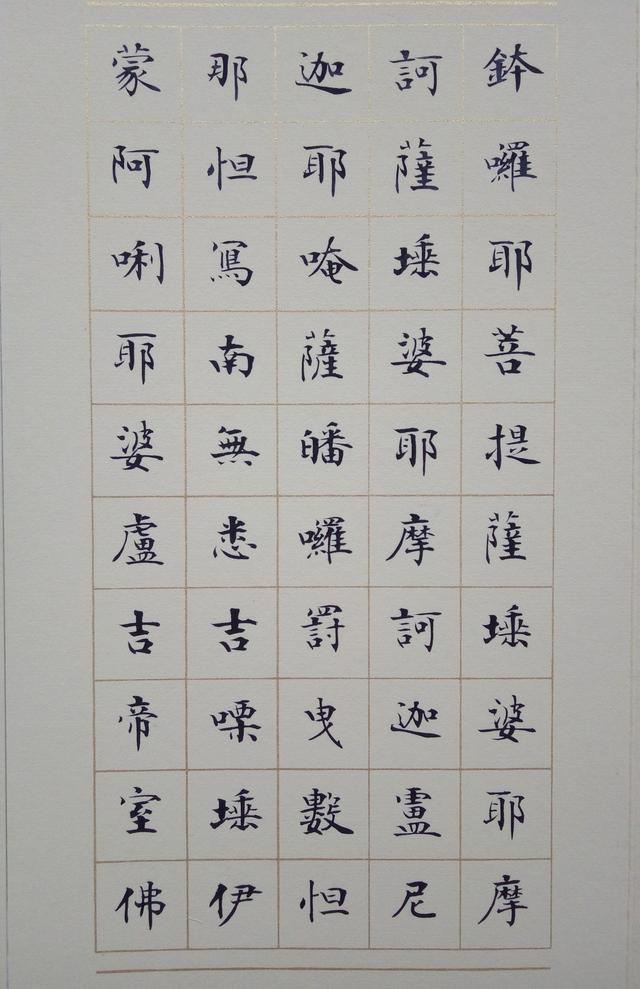 鉢囉耶菩提薩埵婆耶摩
訶薩埵婆耶摩訶迦盧尼
迦耶唵薩皤囉罰曳數怛
那怛寫南無悉吉㗚埵伊
蒙阿唎耶婆盧吉帝室佛